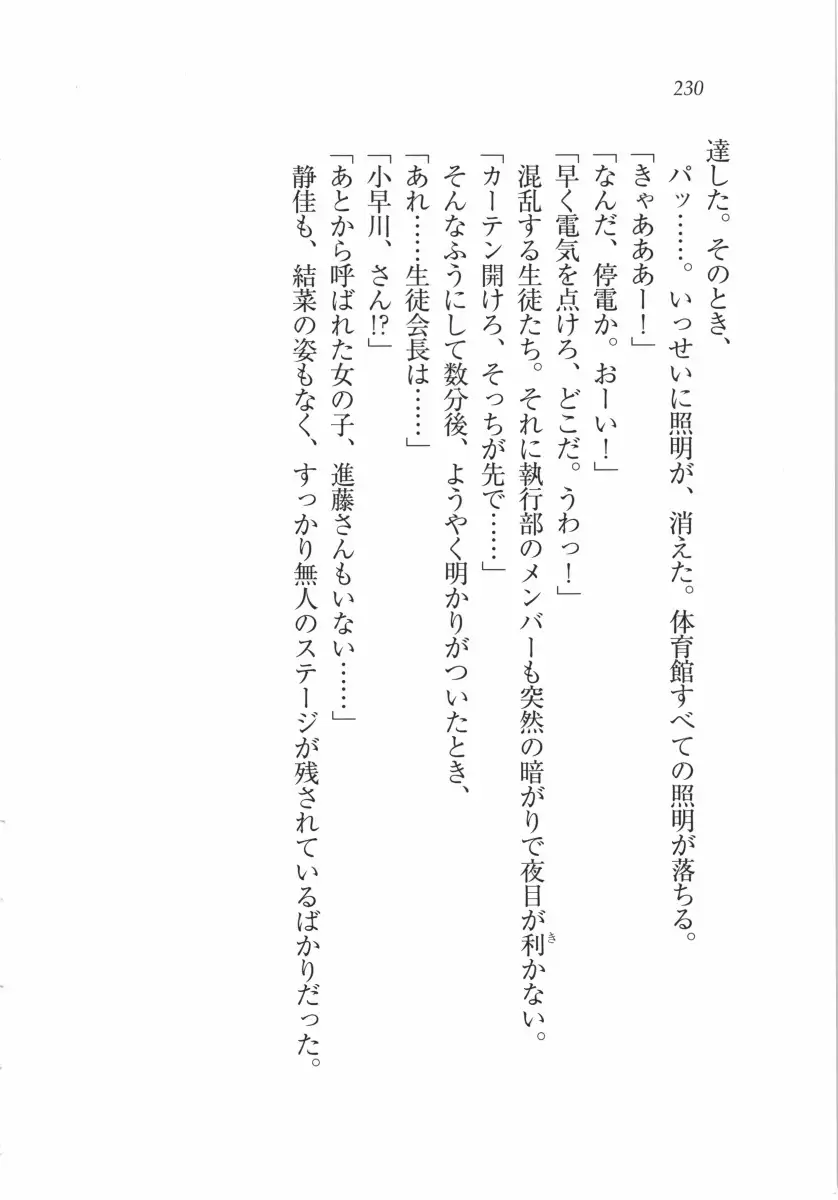 230
達した。そのとき、
パッ……。いっせいに照明が、消えた。体育館すべての照明が落ちる。
「きゃあああー！」
「なんだ、停電か。おーい！」
「早く電気を点けろ、どこだ。うわっ！」
混乱する生徒たち。それに執行部のメンバーも突然の暗がりで夜目が利かない。
き
「カーテン開けろ、そっちが先で……」
そんなふうにして数分後、ようやく明かりがついたとき、
「あれ……生徒会長は……」
「小早川、さん!?」
「あとから呼ばれた女の子、進藤さんもいない……」
静佳も、結菜の姿もなく、すっかり無人のステージが残されているばかりだった。